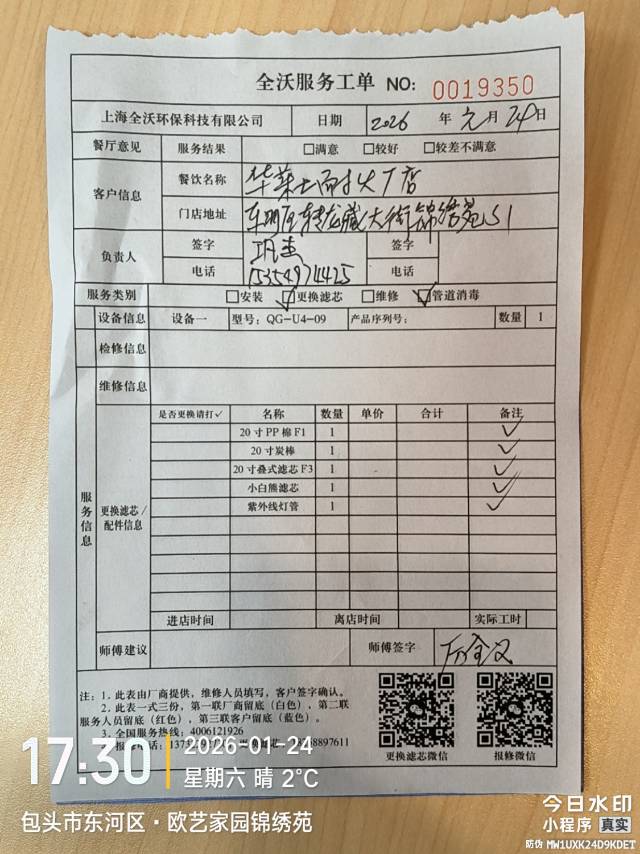 全沃服务工单 NO: 0019350
上海全沃环保科技有限公司 日期 2026 年 元 月 24 日
餐厅意见 服务结果 □满意 □较好 □较差不满意
客户信息 餐饮名称 华莱士耐火厂店
门店地址 龙藏大街锦绣苑S1
负责人 签字 签字
电话 15354971425 电话
服务类别 □安装 ☑更换滤芯 □维修 ☑管道消毒
设备信息 设备一 型号: QG-U4-09 产品序列号: 数量 1
检修信息
维修信息
服务信息
更换滤芯/配件信息
是否更换请打✓ 名称 数量 单价 合计 备注
20寸PP棉F1 1 ✓
20寸炭棒 1 ✓
20寸叠式滤芯F3 1 ✓
小白熊滤芯 1 ✓
紫外线灯管 1 ✓
进店时间 离店时间 实际工时
师傅建议 师傅签字
注: 1. 此表由厂商提供, 维修人员填写, 客户签字确认。
2. 此表一式三份, 第一联厂商留底(白色), 第二联
服务人员留底(红色), 第三联客户留底(蓝色)。
3. 全国服务热线: 4006121926
更换滤芯微信 报修微信
17:30
2026-01-24
星期六 晴 2°C
包头市东河区·欧艺家园锦绣苑
今日水印
小程序 真实
防伪 MW1UXK24D9KDET